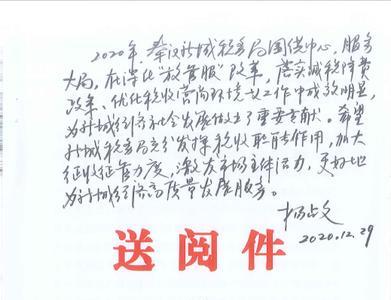 2020年，秦汉新城税务局围绕中心，服务
大局，在深化"放管服"改革，落实减税降费
政策、优化税收营商环境等工作中成效明显，
为新城经济社会发展做出了重要贡献。希望
新城税务局充分发挥税收职能作用，加大
征收征管力度，激发市场主体活力，更好地
为新城经济高质量发展服务。
杨占文
2020.12.29
送阅件